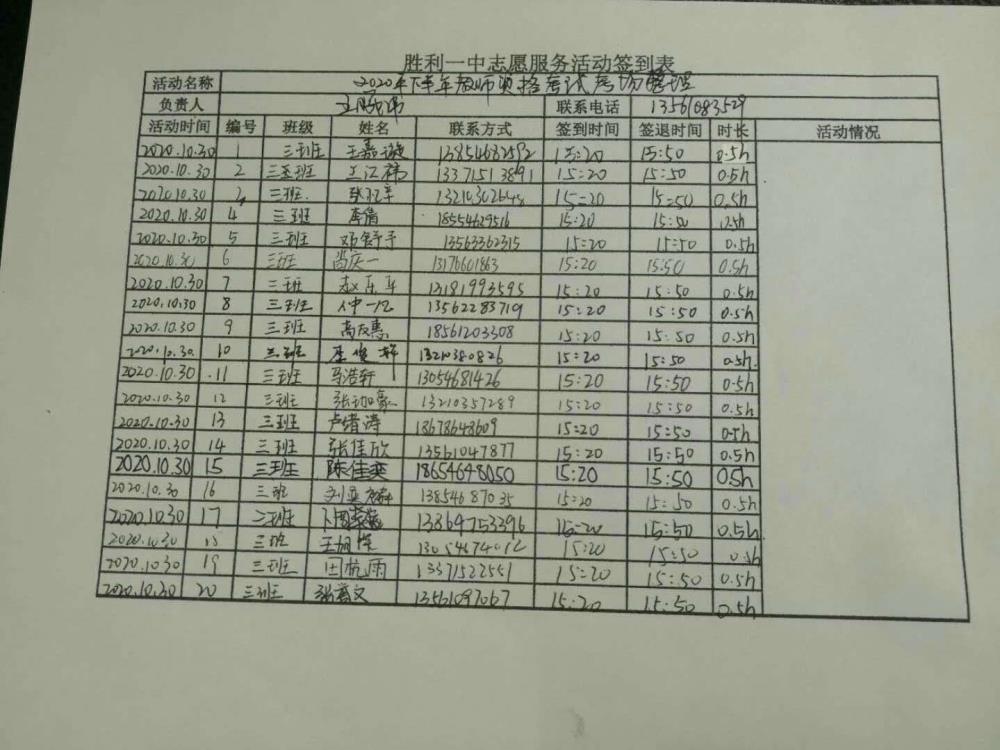 胜利一中志愿服务活动签到表
活动名称 2020年下半年教师资格考试考场管理
负责人 联系电话 13561083529
活动时间 编号 班级 姓名 联系方式 签到时间 签退时间 时长 活动情况
2020.10.30 1 三班 王嘉 13854682592 15:20 15:50 0.5h
2020.10.30 2 三班 王江 13371513891 15:20 15:50 0.5h
2020.10.30 3 三班 13210302648 15:20 15:50 0.5h
2020.10.30 4 三班 李倩 18554629516 15:20 15:50 0.5h
2020.10.30 5 三班 邓舒予 13563362315 15:20 15:50 0.5h
2020.10.30 6 三班 尚庆一 13176601863 15:20 15:50 0.5h
2020.10.30 7 三班 13181993595 15:20 15:50 0.5h
2020.10.30 8 三班 13562283719 15:20 15:50 0.5h
2020.10.30 9 三班 高友惠 18561203308 15:20 15:50 0.5h
2020.10.30 10 三班 李俊 13210380826 15:20 15:50 0.5h
2020.10.30 11 三班 马浩轩 13054681426 15:20 15:50 0.5h
2020.10.30 12 三班 13210357289 15:20 15:50 0.5h
2020.10.30 13 三班 卢绪涛 18678648609 15:20 15:50 0.5h
2020.10.30 14 三班 张佳欣 13561047877 15:20 15:50 0.5h
2020.10.30 15 三班 陈佳奕 18654648050 15:20 15:50 0.5h
2020.10.30 16 三班 13854687035 15:20 15:50 0.5h
2020.10.30 17 三班 13864753396 15:20 15:50 0.5h
2020.10.30 18 三班 15:20 15:50 0.5h
2020.10.30 19 三班 田杭雨 13371522551 15:20 15:50 0.5h
2020.10.30 20 三班 13561097067 15:20 15:50 0.5h